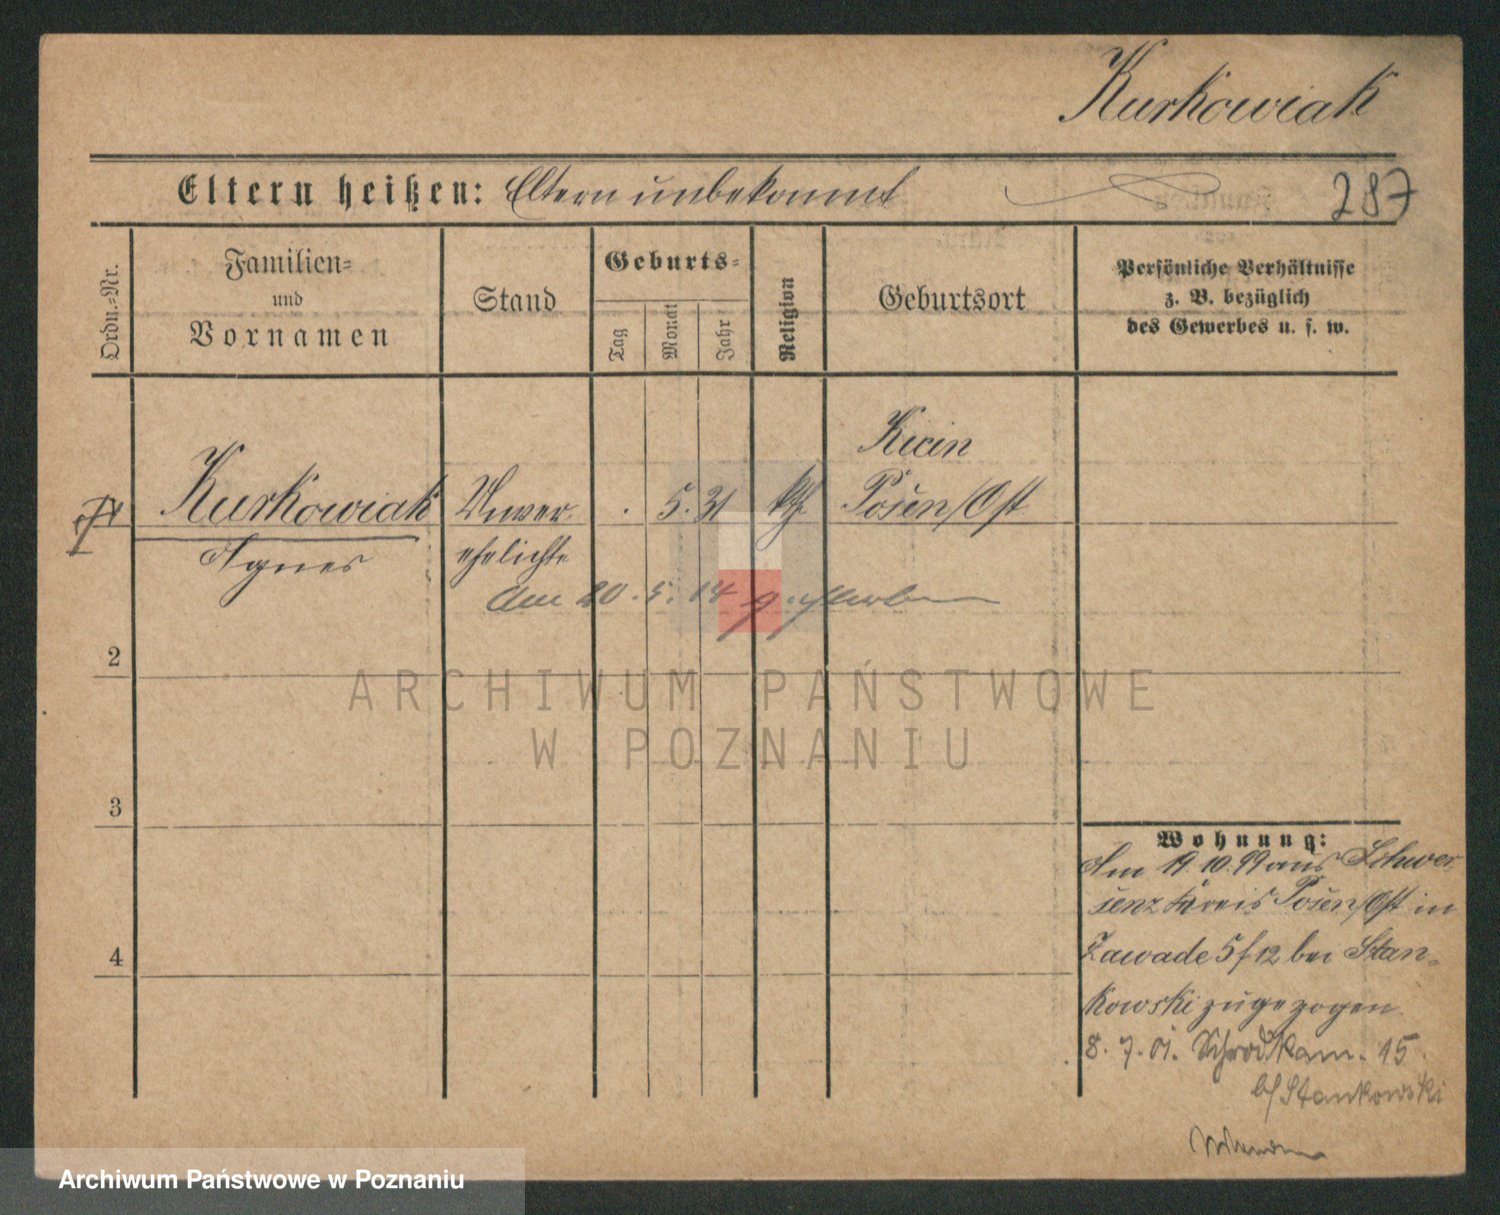 Kurkowiak
Eltern heißen: Eltern unbekannt
287
Ordn.-Nr.
Familien-
und
Vornamen
Stand
Geburts-
Tag
Monat
Jahr
Religion
Geburtsort
Persönliche Verhältnisse
z. B. bezüglich
des Gewerbes u. s. w.
Kurkowiak
Agnes
Unver-
ehelichte
. 5. 31
kth.
Kicin
Posen/Ost
Am 20. 5. 14 gestorben
2
3
4
Wohnung:
Am 19.10.99 aus Schwer-
senz Kreis Posen/Ost in
Zawade 5/12 bei Stan-
kowski zugezogen
8. 7. 01. Schrodkam. 15.
b/ Stankowski
ARCHIWUM PAŃSTWOWE
W POZNANIU
Archiwum Państwowe w Poznaniu